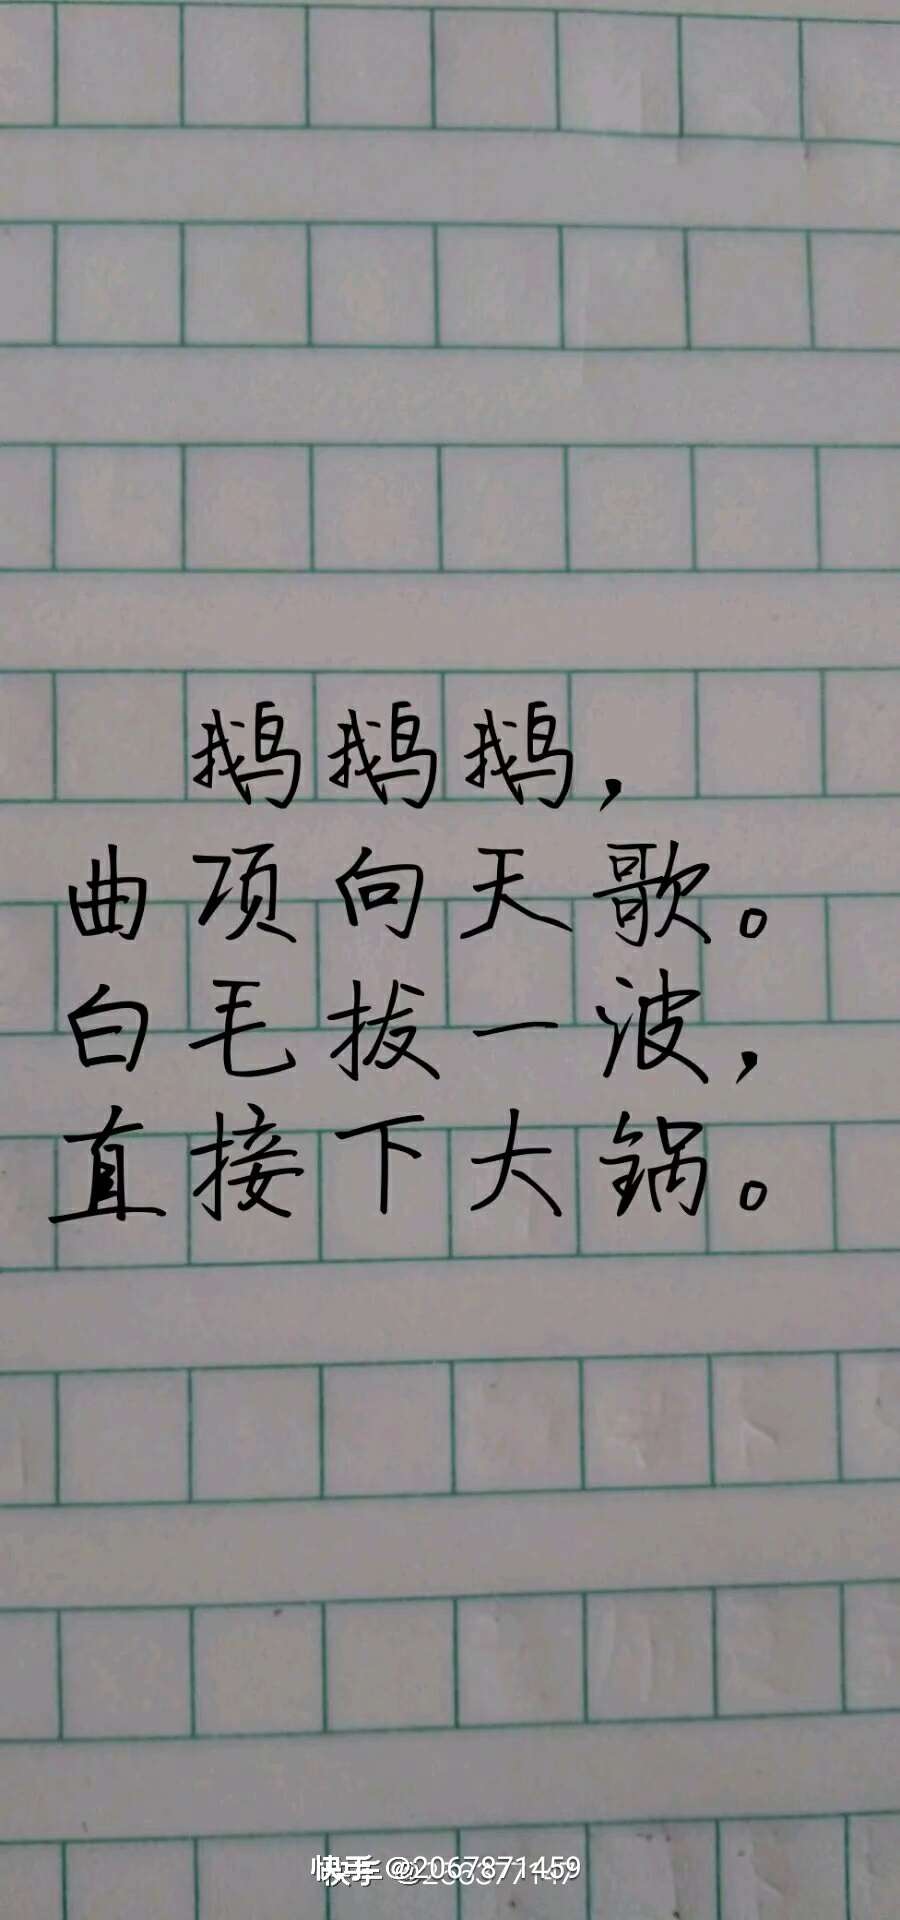 鹅鹅鹅，
曲项向天歌。
白毛拔一波，
直接下大锅。
快手 @2067871459